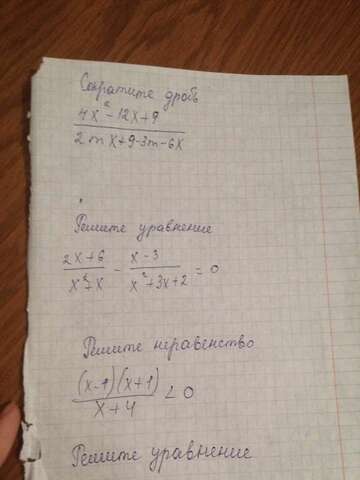 Сократите дробь
4x² - 12x + 9
2mx + 9 - 3m - 6x
Решите уравнение
2x + 6 / x² + x - x - 3 / x² + 3x + 2 = 0
Решите неравенство
(x - 1)(x + 1) / x + 4 < 0
Решите уравнение